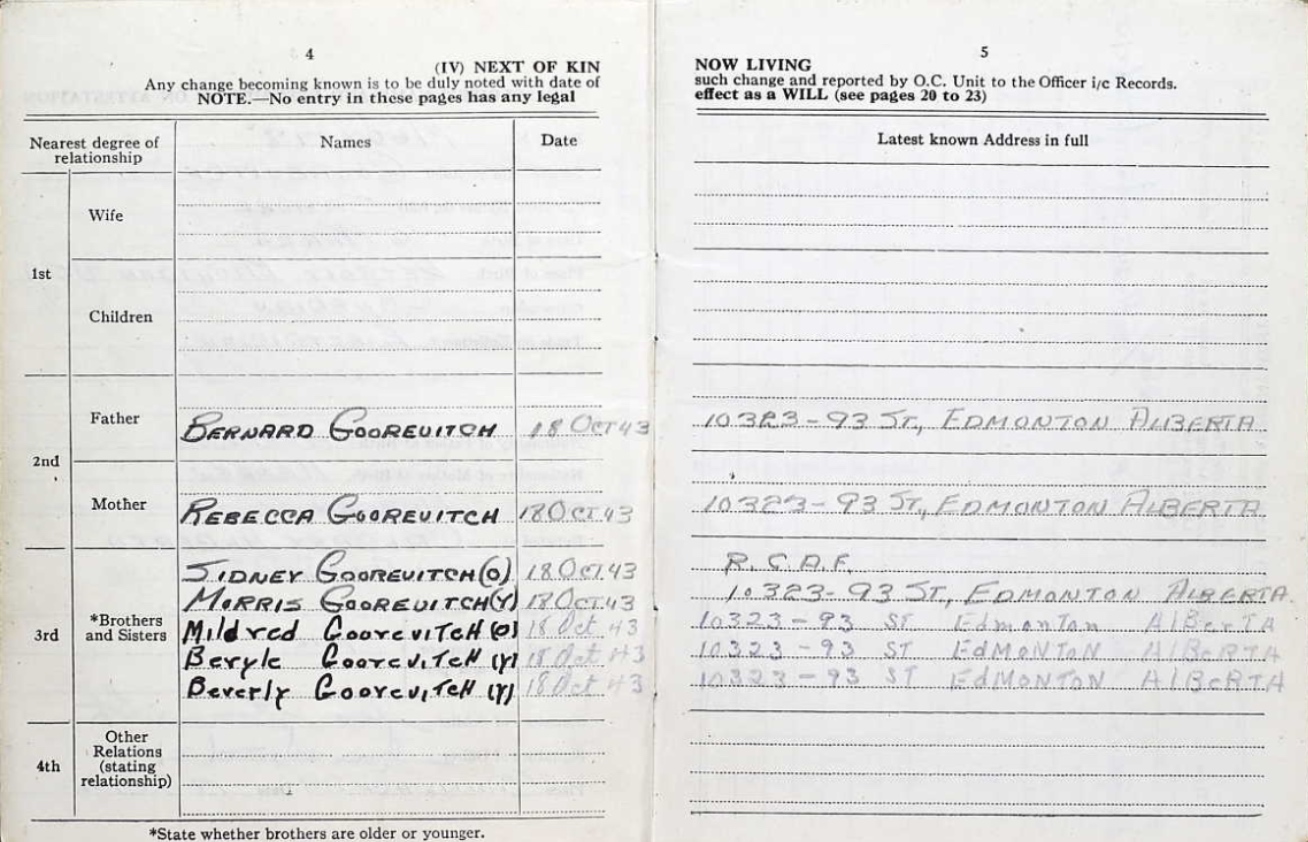 4
(IV) NEXT OF KIN
Any change becoming known is to be duly noted with date of
NOTE.—No entry in these pages has any legal
Nearest degree of relationship
Names
Date
1st
Wife
Children
2nd
Father
BERNARD GOOREVITCH 18 OCT 43
Mother
REBECCA GOOREVITCH 18 OCT 43
3rd
*Brothers and Sisters
SIDNEY GOOREVITCH (O) 18 OCT 43
MORRIS GOOREVITCH (Y) 18 OCT 43
Mildred GooreviTcH (O) 18 Oct 43
Beryle GoorevITcH (Y) 18 Oct 43
Beverly GoorevITcH (Y) 18 Oct 43
4th
Other Relations (stating relationship)
*State whether brothers are older or younger.
5
NOW LIVING
such change and reported by O.C. Unit to the Officer i/c Records.
effect as a WILL (see pages 20 to 23)
Latest known Address in full
10323-93 ST., EDMONTON ALBERTA
10323-93 ST., EDMONTON ALBERTA
R.C.A.F.
10323-93 ST., EDMONTON ALBERTA.
10323-93 ST EdmonTon AlBerTA
10323-93 ST EdMoNToN AlBeRTA
10323-93 ST EdMONTON AlBeRTA